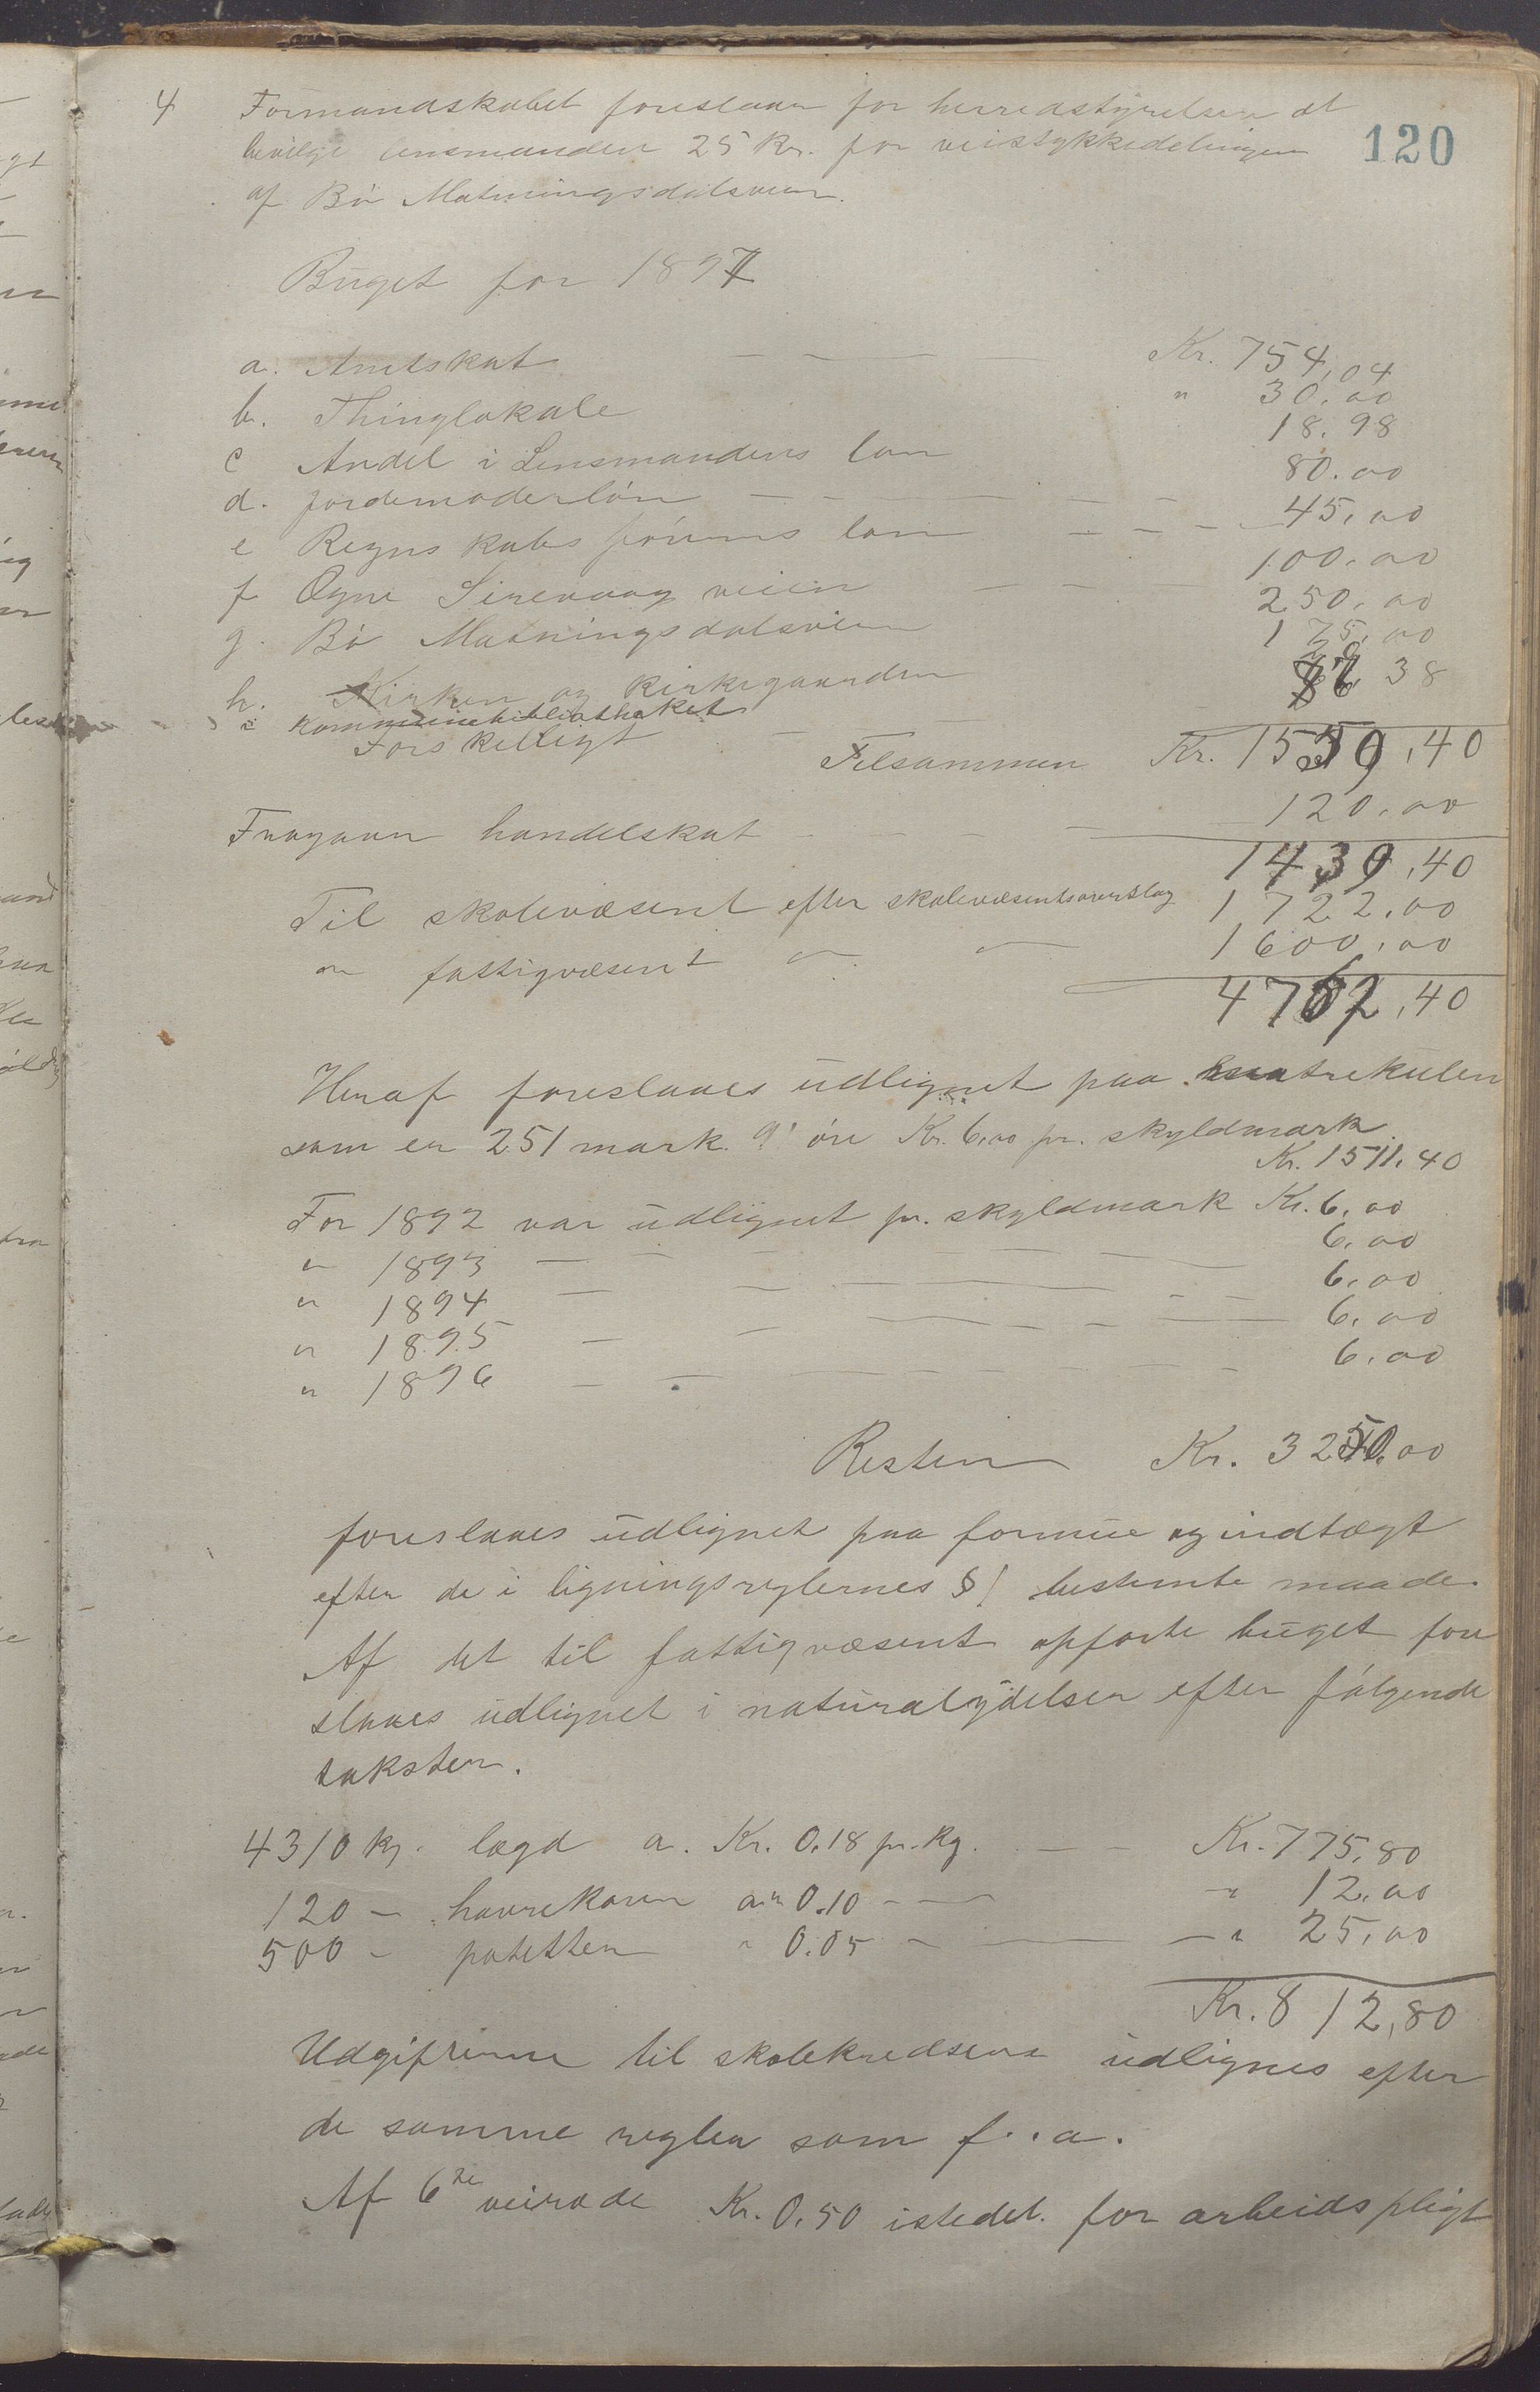 120
4 Formandskabet foreslaar for herredstyrelsen at
bevilge lensmanden 25 Kr. for veistykkedelingen
af Bö Matningsdalsveien.
Buget for 1897
a. Amtskat Kr. 754,04
b. Thinglokale " 30,00
c Andel i Lensmandens løn 18.98
d. jordemoderlön 80.00
e Regnskabsförerens løn 45,00
f Ogne Sirevaag veien 100,00
g. Bö Matningsdalsveien 250,00
h. Kirken og kirkegaarden 175,00
i Kommunebibliotheket 20
Forskelligt 38
Tilsammen Kr. 1559,40
Fragaar handelskat 120,00
1439,40
Til skolevæsenet efter skolevæsentsoverslag 1722,00
" fattigvæsent " 1600,00
4762,40
Heraf foreslaaes udlignet paa matrekulen
som er 251 mark 9' öre Kr. 6,00 pr. skyldmark
Kr. 1511,40
For 1892 var udlignet pr. skyldmark Kr. 6,00
" 1893 — — — 6,00
" 1894 — — — 6,00
" 1895 — — — 6,00
" 1896 — — — 6,00
Resten Kr. 3250,00
foreslaaes udlignet paa formue og indtægt
efter de i ligningsreglernes § 1 bestemte maade.
Af det til fattigvæsent opførte buget fore
slaaes udlignet i naturalydelser efter fölgende
takster.
4310 kg. lægd a. Kr. 0.18 pr. kg. Kr. 775,80
120 — havrekorn a " 0.10 — — " 12,00
500 — poteter " 0.05 — — " 25,00
Kr. 812,80
Udgifterne til skolekredsene udlignes efter
de samme regler som f. a.
Af 6te veirode Kr. 0,50 istedet for arbeidspligt